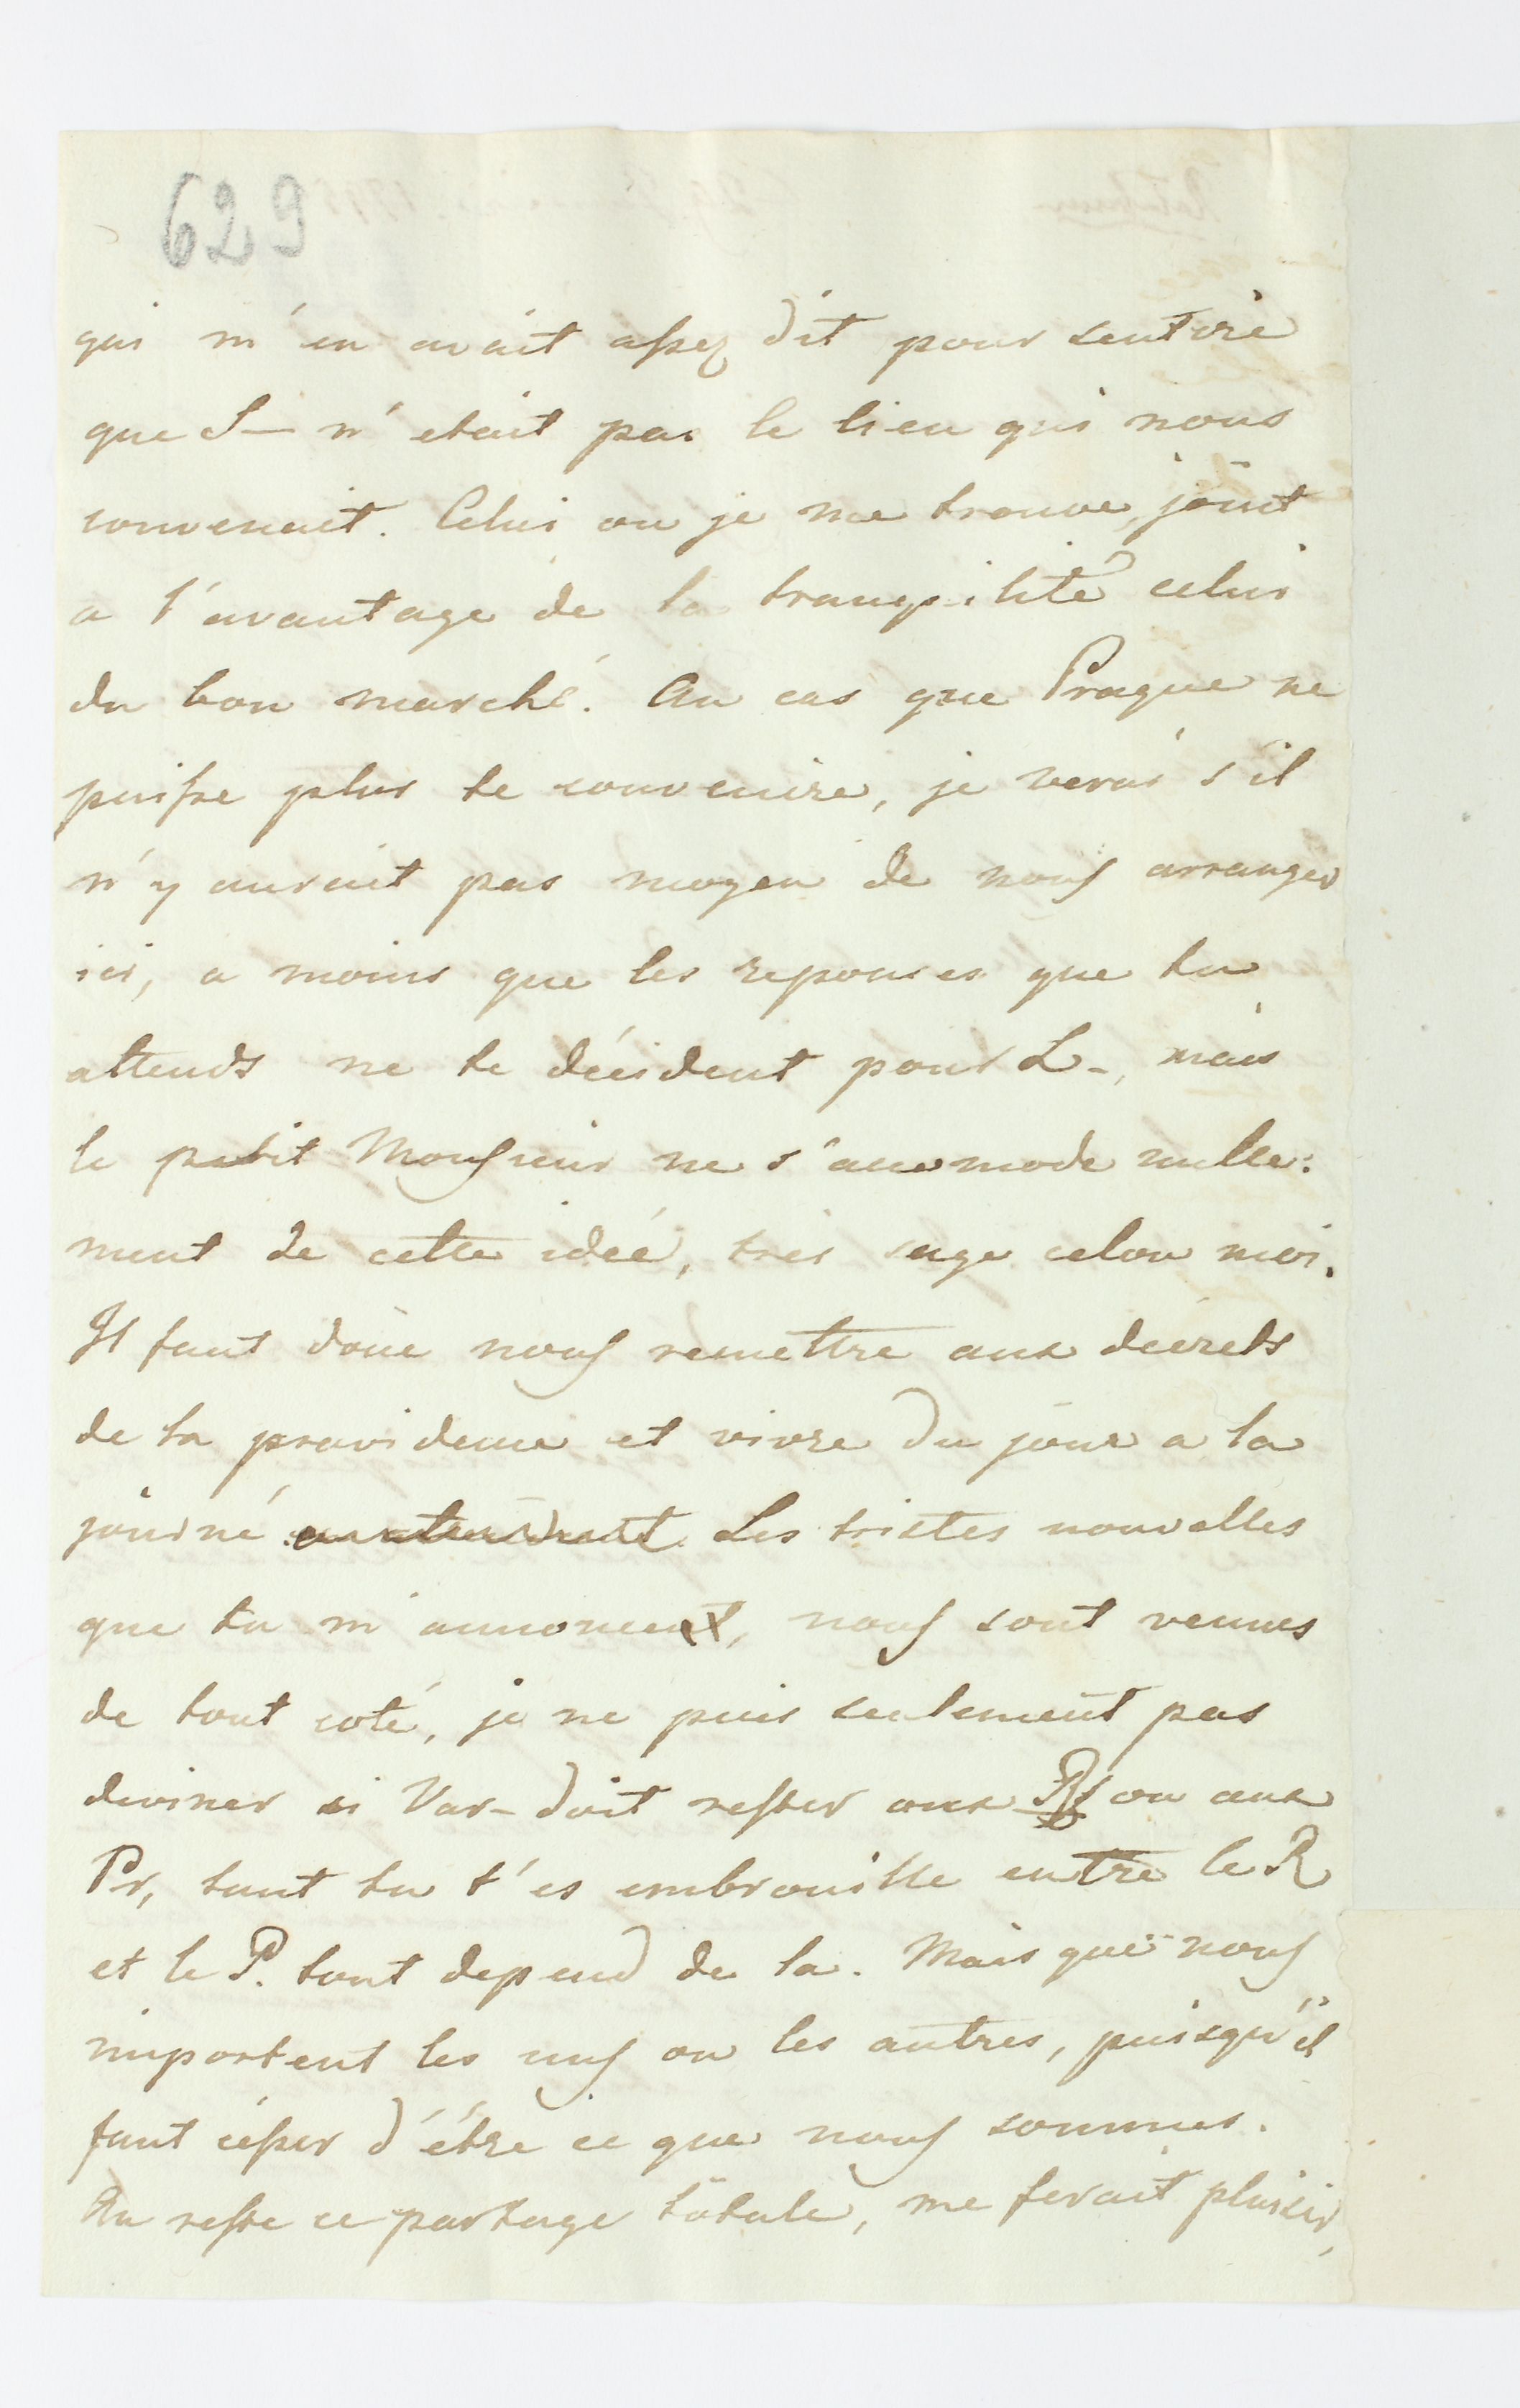 629
qui m'en avait assez dit pour sentire
que L— n'etait pas le lieu qui nous
convenait. Celui ou je me trouve, joint
a l'avantage de la tranquilité celui
du bon marché. Au cas que Prague ne
puisse plus te convenire, je verai s'il
n'y aurait pas moyen de nous arranger
ici, a moins que les reponses que tu
attends ne te décident pour L-, mais
le petit Monsieur ne s'accomode nulle:
ment de cette idée, très sage celon moi.
Il faut donc nous remettre aux décrets
de la providence et vivre du jour a la
journé. Les tristes nouvelles
que tu m'annonce, nous sont venues
de tout coté, je ne puis seulement pas
deviner si Var- doit rester aux Rs ou aux
Pr, tant tu t'es embrouille entre le R
et le P. tout depend de la. Mais que nous
importent les uns ou les autres, puisqu'il
faut cesser d'être ce que nous sommes.
Au reste ce partage totale, me ferait plaisir,